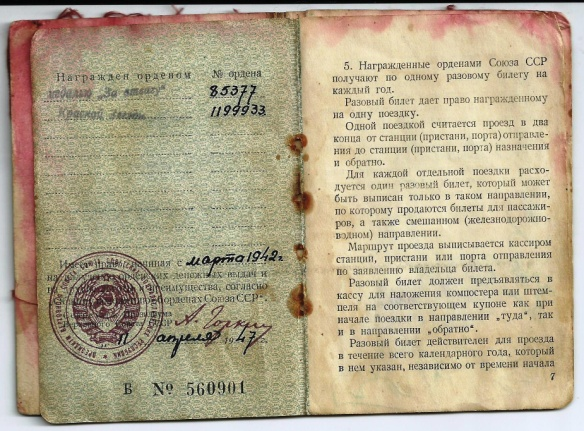 Награжден орденом № ордена
медалью „За отвагу" 85377
Красной Звезды 1199933
с марта 1942 г.
денежных выдач и
преимущества, согласно
орденах Союза ССР".
А. Горкин
11 апреля 1947 г.
В № 560901
5. Награжденные орденами Союза ССР
получают по одному разовому билету на
каждый год.
Разовый билет дает право награжденному
на одну поездку.
Одной поездкой считается проезд в два
конца от станции (пристани, порта) отправле-
ния до станции (пристани, порта) назначения
и обратно.
Для каждой отдельной поездки расхо-
дуется один разовый билет, который может
быть выписан только в таком направлении,
по которому продаются билеты для пассажи-
ров, а также смешанном (железнодорожно-
водном) направлении.
Маршрут проезда выписывается кассиром
станции, пристани или порта отправления
по заявлению владельца билета.
Разовый билет должен предъявляться в
кассу для наложения компостера или штем-
пеля на соответствующем купоне как при
начале поездки в направлении „туда", так
и в направлении „обратно".
Разовый билет действителен для проезда
в течение всего календарного года, который
в нем указан, независимо от времени начала
7